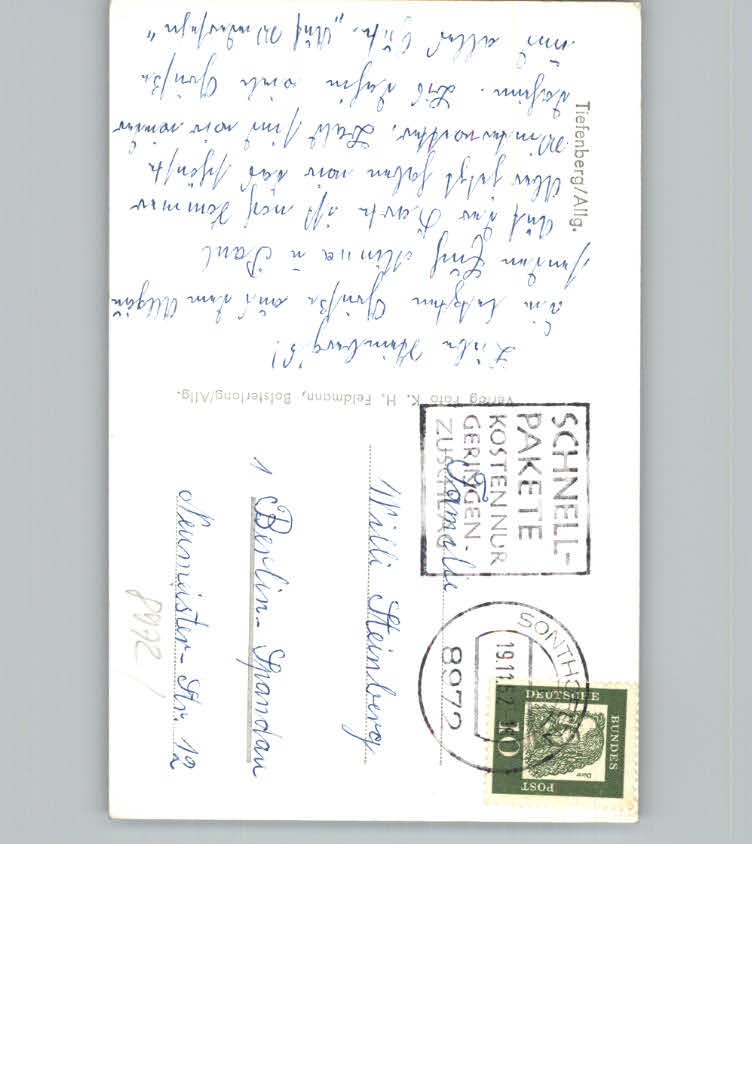 Tiefenberg/Allg.
Liebe Steinberg's!
Die letzten Grüße aus dem Allgäu
senden Euch Minna u Paul
Auf der Karte ist noch Sommer
Aber jetzt haben wir das schönste
Winterwetter. Bald sind wir wieder
daheim. Bis dahin viele Grüße
und alles Gute. „Auf Wiedersehn"
Verlag Foto K. H. Feldmann, Bolsterlang/Allg.
SCHNELL-
PAKETE
KOSTEN NUR
GERINGEN
ZUSCHLAG
SONTHOFEN
19.11.62
8972
DEUTSCHE
BUNDES
POST
Dürer
10
Familie
Willi Steinberg
1 Berlin-Spandau
Neumeister-Str. 12
8972